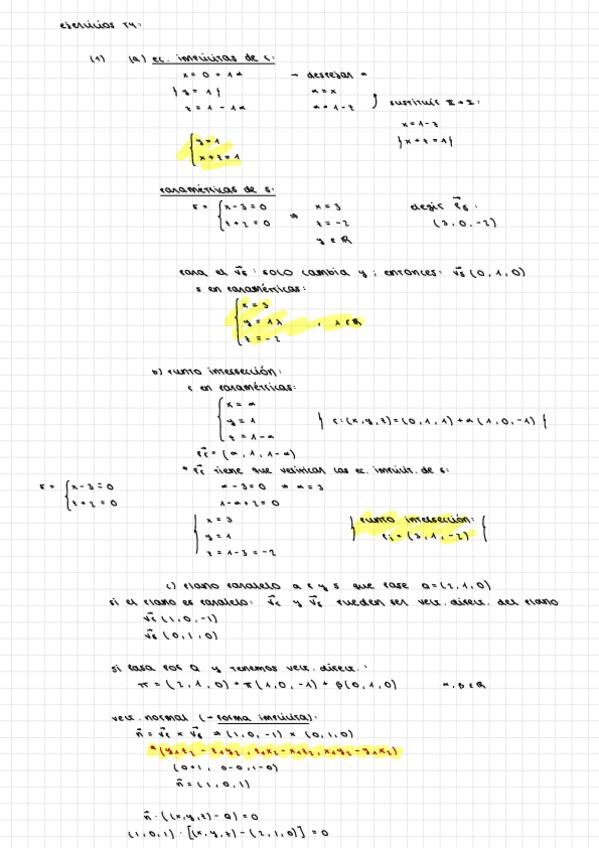 ejercicios T4:
(1) (a) ec. implícitas de r:
x = 0 + 1α → despejar α
y = 1 α = x
z = 1 - 1α α = 1 - z sustituir
x = 1 - z
x + z = 1
y = 1
x + z = 1
paramétricas de s:
s = x - 3 = 0 ⇒ x = 3 elegir Ps:
z + 2 = 0 z = -2 (3, 0, -2)
y ∈ R
para el vs: solo cambia y; entonces: vs (0, 1, 0)
s en paramétricas:
x = 3
y = 1λ , λ ∈ R
z = -2
b) punto intersección:
r en paramétricas:
x = α
y = 1 r: (x, y, z) = (0, 1, 1) + α (1, 0, -1)
z = 1 - α
Pr = (α, 1, 1 - α)
* Pr tiene que verificar las ec. implícit. de s:
s = x - 3 = 0 α - 3 = 0 ⇒ α = 3
z + 2 = 0 1 - α + 2 = 0
x = 3 punto intersección:
y = 1 Pi = (3, 1, -2)
z = 1 - 3 = -2
c) plano paralelo a r y s que pase Q = (2, 1, 0)
si el plano es paralelo: vr y vs pueden ser vect. direct. del plano
vr (1, 0, -1)
vs (0, 1, 0)
si pasa por Q y tenemos vect. direct.:
π = (2, 1, 0) + π (1, 0, -1) + β (0, 1, 0) α, β ∈ R
vect. normal (→ forma implícita):
n = vr × vs ⇒ (1, 0, -1) × (0, 1, 0)
* (y1z2 - z1y2, z1x2 - x1z2, x1y2 - y1x2)
(0 + 1, 0 - 0, 1 - 0)
n = (1, 0, 1)
n · ((x, y, z) - Q) = 0
(1, 0, 1) · [(x, y, z) - (2, 1, 0)] = 0